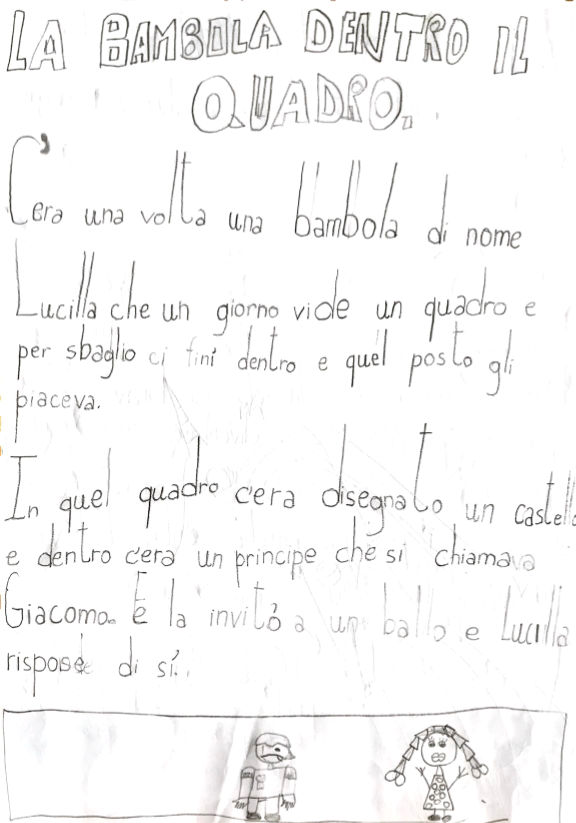 LA BAMBOLA DENTRO IL
QUADRO.
C'era una volta una bambola di nome
Lucilla che un giorno vide un quadro e
per sbaglio ci finì dentro e quel posto gli
piaceva.
In quel quadro c'era disegnato un castello
e dentro c'era un principe che si chiamava
Giacomo. E la invitò a un ballo e Lucilla
rispose di sì.